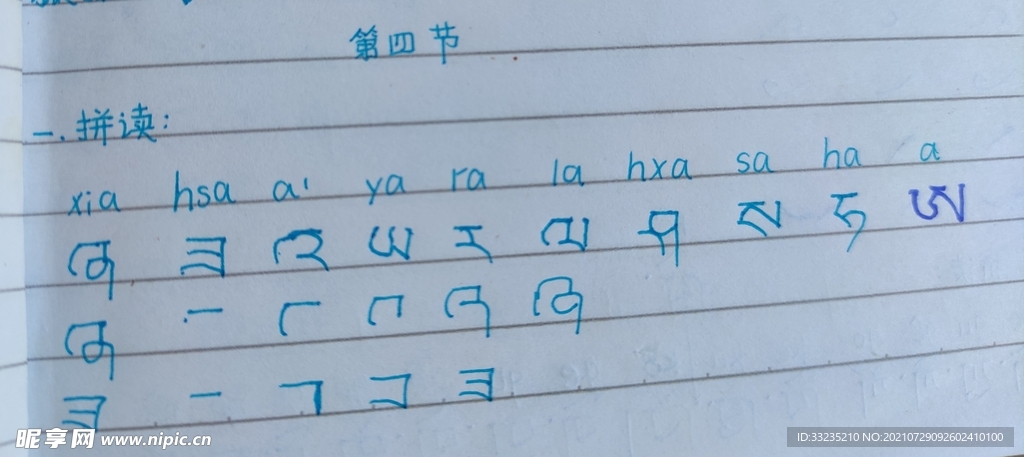 第四节
一.拼读:
xia hsa a' ya ra la hxa sa ha a
ཞ ཟ འ ཡ ར ལ ཤ ས ཧ ཨ
ཞ
ཟ
昵享网 www.nipic.cn
ID:33235210 NO:20210729092602410100